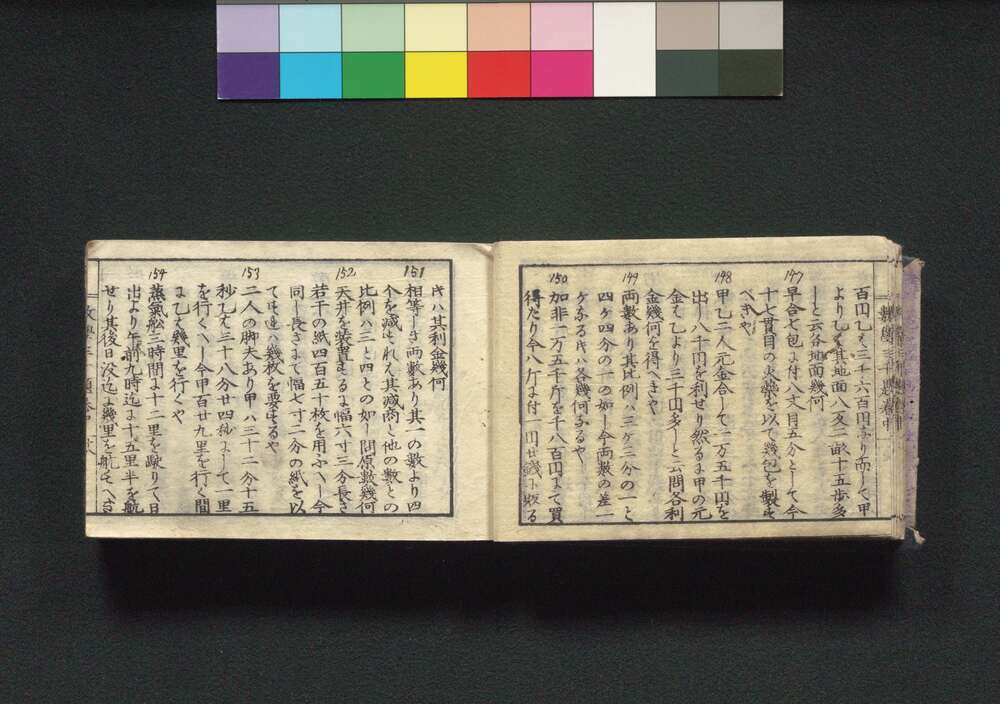 百円乙ハ三千六百円なり而して甲
より乙ハ其地面八反二畝十五歩多
しと云各地面幾何
147
早合七包ニ付八文目五分として今
十七貫目の火薬を以て幾包を製す
べきや
148
甲乙二人元金合して一万五千円を
出し八千円を利せり然るに甲の元
金ハ乙より三千円多しと云問各利
金幾何を得へきや
149
両数あり其比例ハ三ケ二分の一と
四ケ四分の一の如し今両数の差一
ケなる片ハ各幾何なるや
150
加非一万五千斤を千八百円にて買
得たり今八斤に付一円廿銭に販る
片ハ其利金幾何
151
相等しき両数あり其一の数より四
個を減せれハ其減商と他の数との
比例ハ三と四との如し問原数幾何
152
天井を装置するに幅六寸三分長さ
若干の紙四百五十枚を用ふへし今
同し長さにて幅七寸二分の紙を以
てすれハ幾枚を要するや
153
二人の脚夫あり甲ハ三十二分十五
秒乙ハ三十八分廿四秒にして一里
を行くへし今甲百廿九里を行く間
に乙ハ幾里を行くや
154
蒸氣舩三時間に十二里を駛りて日
出より午前九時迄に十五里半を航
せり其後日没迄に幾里を航すへき